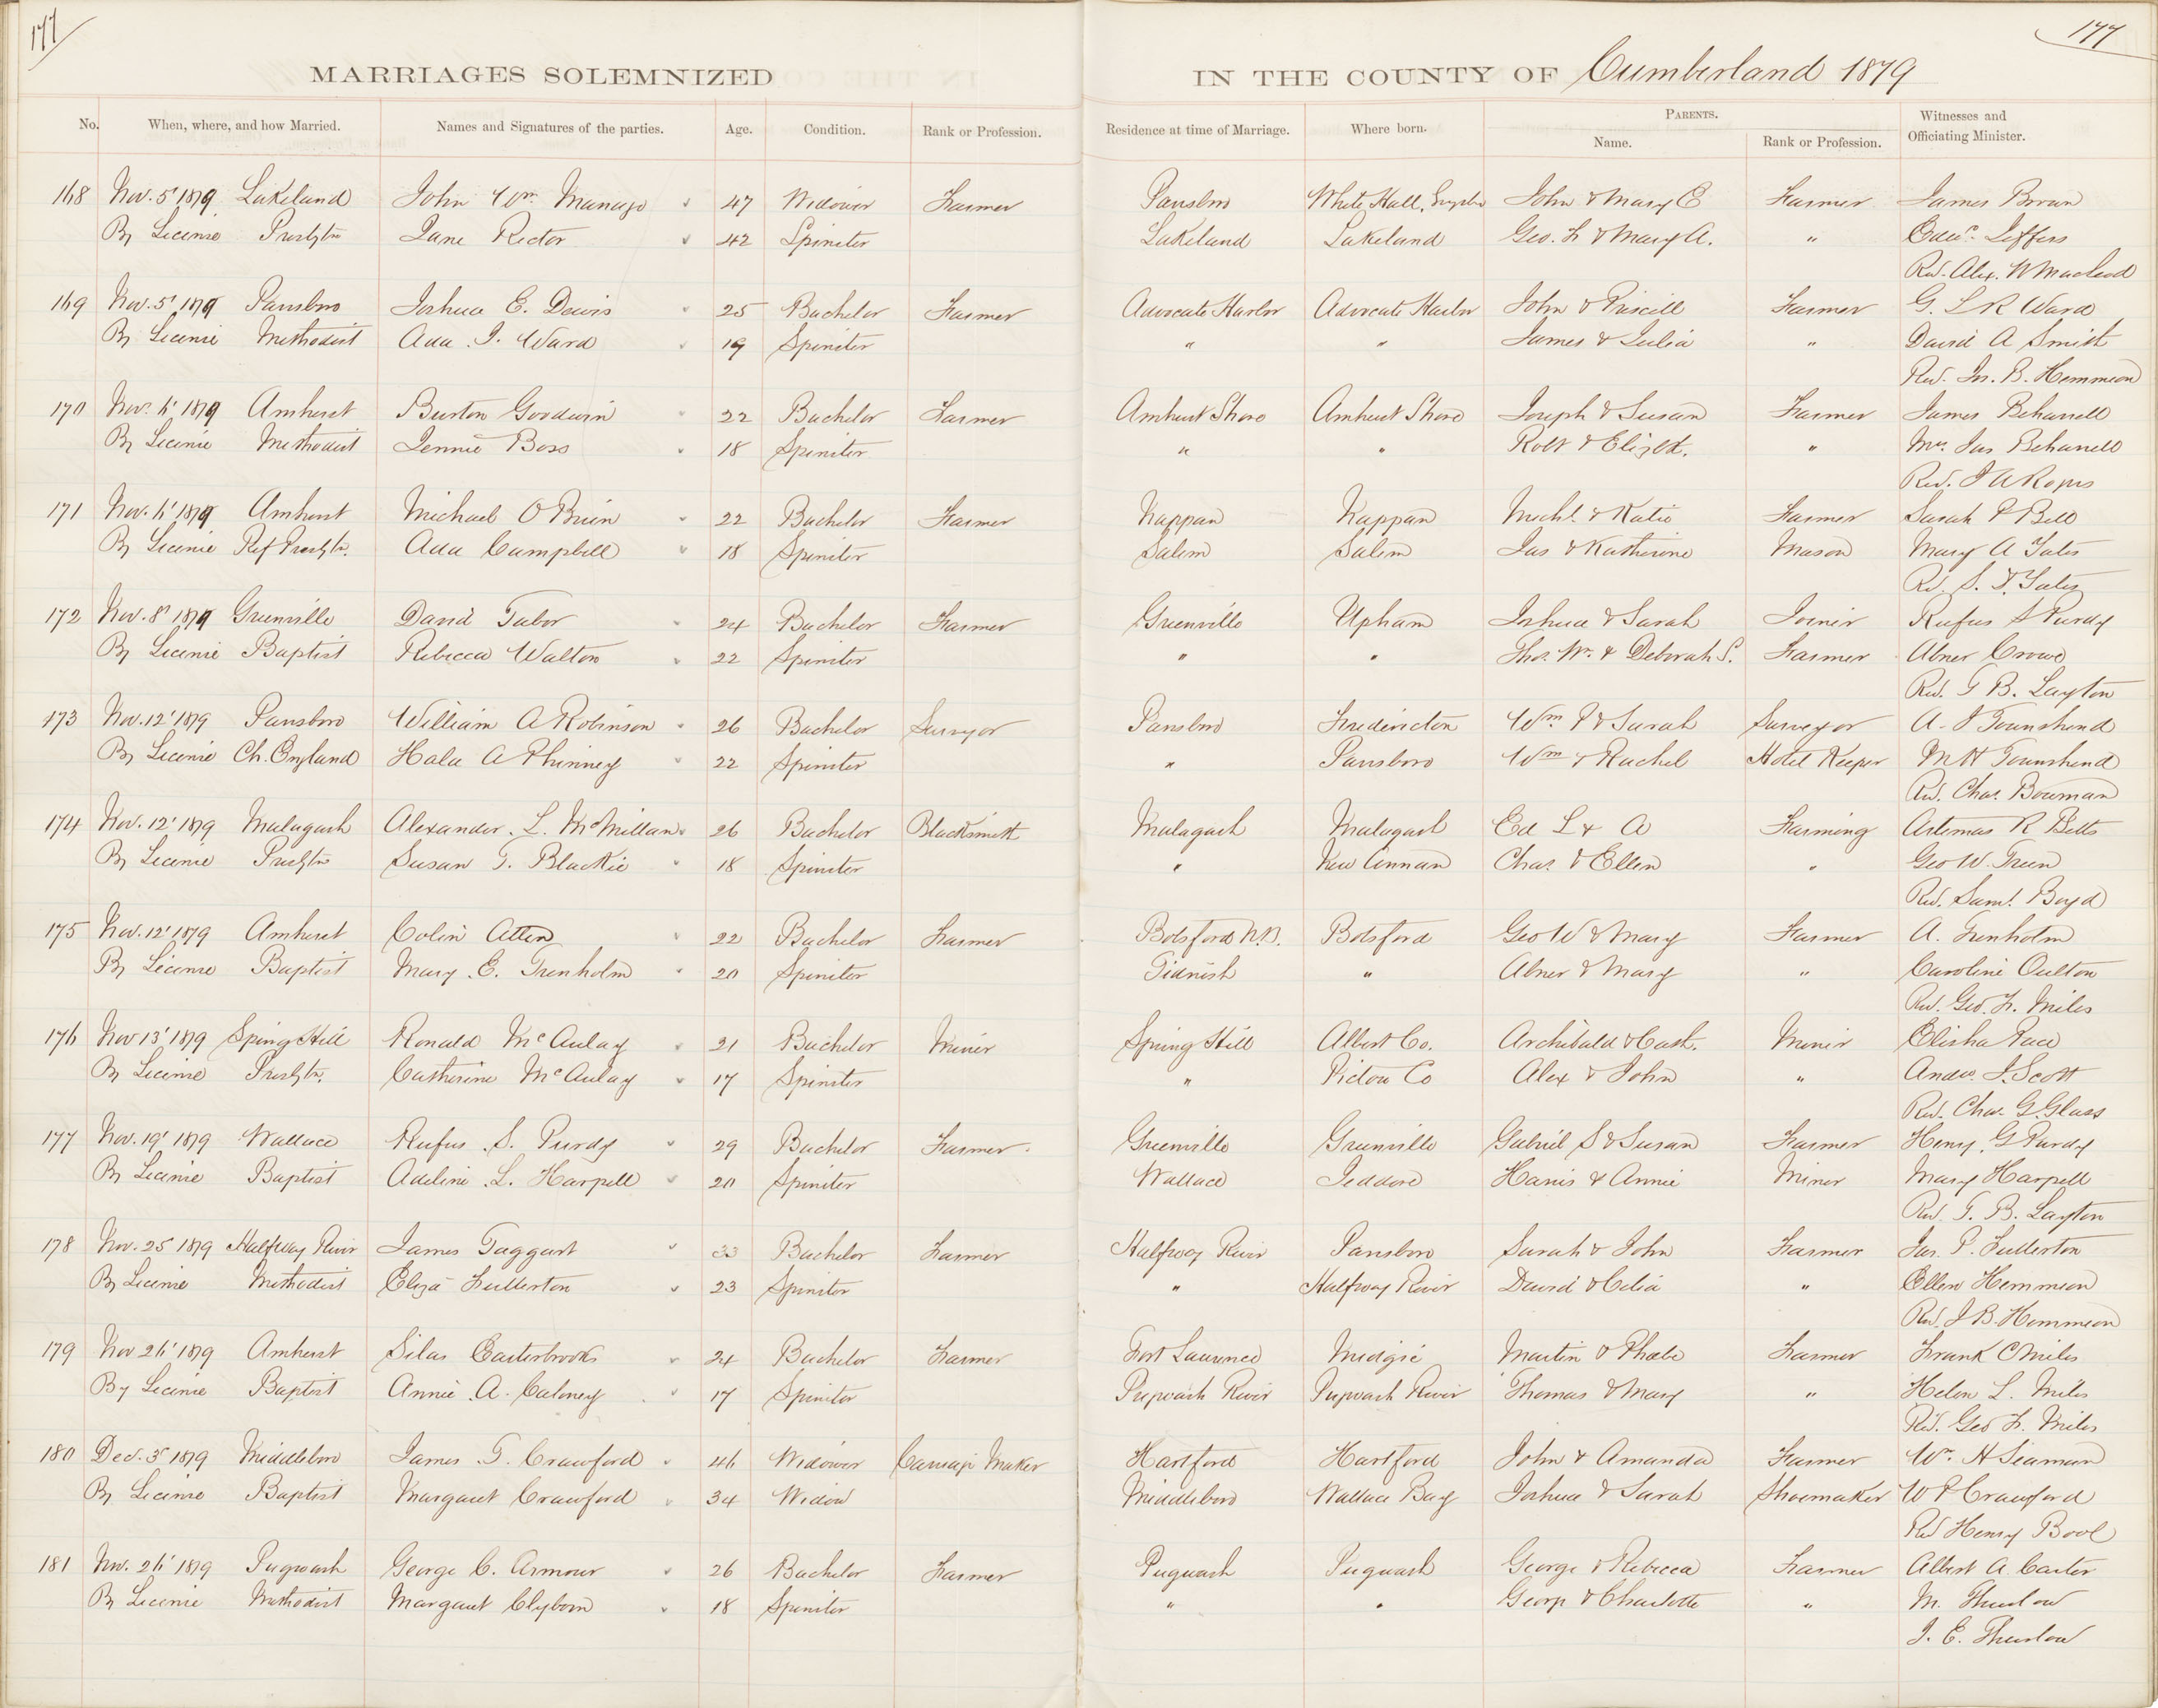 177
177
MARRIAGES SOLEMNIZED IN THE COUNTY OF Cumberland 1879
No. When, where, and how Married. Names and Signatures of the parties. Age. Condition. Rank or Profession. Residence at time of Marriage. Where born. PARENTS. Name. Rank or Profession. Witnesses and Officiating Minister.
168 Nov. 5' 1879 Lakeland John Wm. Munago 47 Widower Farmer Parrsboro White Hall, John & Mary E Farmer James Brown
By License Presbytn Jane Rector 42 Spinster Lakeland Lakeland Geo. F. & Mary A. " Edwd. Jeffers
Rev. Alex. W Macleod
169 Nov. 5' 1879 Parrsboro Joshua E. Davis 25 Bachelor Farmer Advocate Harbor Advocate Harbor John & Priscill Farmer G. L R Ward
By License Methodist Ada. I. Ward 19 Spinster " " James & Julia " David A Smith
Rev. Jn. B. Hemmeon
170 Nov. 6' 1879 Amherst Burton Goodwin 22 Bachelor Farmer Amherst Shore Amherst Shore Joseph & Susan Farmer James Beharrell
By License Methodist Jennie Boss 18 Spinster " " Robt & Elizbt. " Mrs. Jas Beharrell
Rev. J A Rogers
171 Nov. 6' 1879 Amherst Michael O Brien 22 Bachelor Farmer Nappan Nappan Michl. & Katie Farmer Sarah P Bell
By License Ref Presbytn. Ada Campbell 18 Spinster Salem Salem Jas & Katherine Mason Mary A Yates
Rev. S. F. Yates
172 Nov. 8' 1879 Greenville David Tabor 24 Bachelor Farmer Greenville Upham Joshua & Sarah Joiner Rufus S Purdy
By License Baptist Rebecca Walton 22 Spinster " " Thos. Wm. & Deborah S. Farmer Abner Crowe
Rev. T B. Layton
173 Nov. 12' 1879 Parrsboro William A Robinson 26 Bachelor Surveyor Parrsboro Fredericton Wm P & Sarah Surveyor A. J Townshend
By License Ch. England Hala A Phinney 22 Spinster " Parrsboro Wm & Rachel Hotel Keeper M H Townshend
Rev. Chas. Bowman
174 Nov. 12' 1879 Malagash Alexander. L. McMillan 26 Bachelor Blacksmith Malagash Malagash Ed L & A Farming Artemas R Betts
By License Presbytn Susan T. Blackie 18 Spinster " New Annan Chas. & Ellen " Geo W. Treen
Rev. Saml. Boyd
175 Nov. 12' 1879 Amherst Colin Allen 22 Bachelor Farmer Botsford N.B. Botsford Geo W & Mary Farmer A. Trenholm
By License Baptist Mary. E. Trenholm 20 Spinster Tidnish " Abner & Mary " Caroline Oulton
Rev. Geo. F. Miles
176 Nov 13' 1879 Spring Hill Ronald McAulay 21 Bachelor Miner Spring Hill Albert Co. Archibald & Cath. Miner Elisha Pace
By License Presbytn. Catherine McAulay 17 Spinster " Pictou Co Alex & John " Andw. J. Scott
Rev. Chas. G. Glass
177 Nov. 19' 1879 Wallace Rufus. S. Purdy 29 Bachelor Farmer. Greenville Greenville Gabriel S & Susan Farmer Henry. G Purdy
By License Baptist Adeline. L. Harpell 20 Spinster Wallace Jeddore Harris & Annie Miner Mary Harpell
Rev. T. B. Layton
178 Nov. 25 1879 Halfway River James Taggart 33 Bachelor Farmer Halfway River Parrsboro Sarah & John Farmer Jas. P. Fullerton
By License Methodist Eliza Fullerton 23 Spinster " Halfway River David & Celia " Ellen Hemmeon
Rev. J B. Hemmeon
179 Nov 26' 1879 Amherst Silas Easterbrooks 24 Bachelor Farmer Fort Laurence Midgic Martin & Phoebe Farmer Frank C Miles
By License Baptist Annie. A. Caloney 17 Spinster Pugwash River Pugwash River Thomas & Mary " Helen L. Miles
Rev. Geo F. Miles
180 Dec. 3' 1879 Middleboro James. T. Crawford 46 Widower Carriage Maker Hartford Hartford John & Amanda Farmer Wm. H Seaman
By License Baptist Margaret Crawford 34 Widow Middleboro Wallace Bay Joshua & Sarah Shoemaker W P Crawford
Rev Henry Bool
181 Nov. 26' 1879 Pugwash George C. Armour 26 Bachelor Farmer Pugwash Pugwash George & Rebecca Farmer Albert A. Carter
By License Methodist Margaret Clyborn 18 Spinster " " George & Charlotte " M. Thurlow
J. E. Thurlow